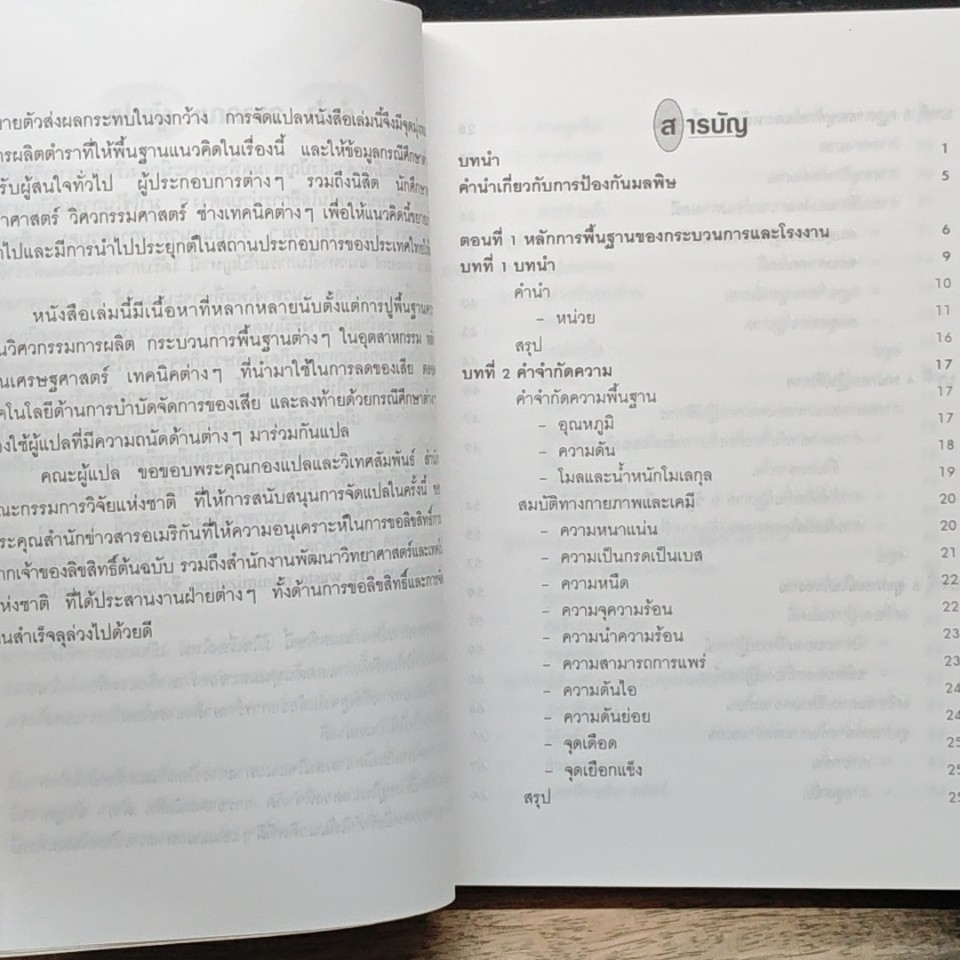 ายตัวส่งผลกระทบในวงกว้าง การจัดแปลหนังสือเล่มนี้จึงมี
ารผลิตตำราที่ให้พื้นฐานแนวคิดในเรื่องนี้ และให้ข้อมูลกรณีศึกษา
รับผู้สนใจทั่วไป ผู้ประกอบการต่างๆ รวมถึงนิสิต นักศึกษา
าศาสตร์ วิศวกรรมศาสตร์ ช่างเทคนิคต่างๆ เพื่อให้แนวคิดนี้ขยาย
ไปและมีการนำไปประยุกต์ในสถานประกอบการของประเทศไทย
หนังสือเล่มนี้มีเนื้อหาที่หลากหลายนับตั้งแต่การปูพื้นฐาน
นวิศวกรรมการผลิต กระบวนการพื้นฐานต่างๆ ในอุตสาหกรรม
นเศรษฐศาสตร์ เทคนิคต่างๆ ที่นำมาใช้ในการลดของเสีย
คโนโลยีด้านการบำบัดจัดการของเสีย และลงท้ายด้วยกรณีศึกษาต่างๆ
องใช้ผู้แปลที่มีความถนัดด้านต่างๆ มาร่วมกันแปล
คณะผู้แปล ขอขอบพระคุณกองแปลและวิเทศสัมพันธ์
ณะกรรมการวิจัยแห่งชาติ ที่ให้การสนับสนุนการจัดแปลในครั้งนี้
ระคุณสำนักข่าวสารอเมริกันที่ให้ความอนุเคราะห์ในการขอลิขสิทธิ์
ากเจ้าของลิขสิทธิ์ต้นฉบับ รวมถึงสำนักงานพัฒนาวิทยาศาสตร์และ
ห่งชาติ ที่ได้ประสานงานฝ่ายต่างๆ ทั้งด้านการขอลิขสิทธิ์และ
นสำเร็จลุล่วงไปด้วยดี
สารบัญ
บทนำ 1
คำนำเกี่ยวกับการป้องกันมลพิษ 5
ตอนที่ 1 หลักการพื้นฐานของกระบวนการและโรงงาน 6
บทที่ 1 บทนำ 9
คำนำ 10
– หน่วย 11
สรุป 16
บทที่ 2 คำจำกัดความ 17
คำจำกัดความพื้นฐาน 17
– อุณหภูมิ 17
– ความดัน 18
– โมลและน้ำหนักโมเลกุล 19
สมบัติทางกายภาพและเคมี 20
– ความหนาแน่น 20
– ความเป็นกรดเป็นเบส 21
– ความหนืด 22
– ความจุความร้อน 22
– ความนำความร้อน 23
– ความสามารถการแพร่ 23
– ความดันไอ 24
– ความดันย่อย 24
– จุดเดือด 25
– จุดเยือกแข็ง 25
สรุป 25